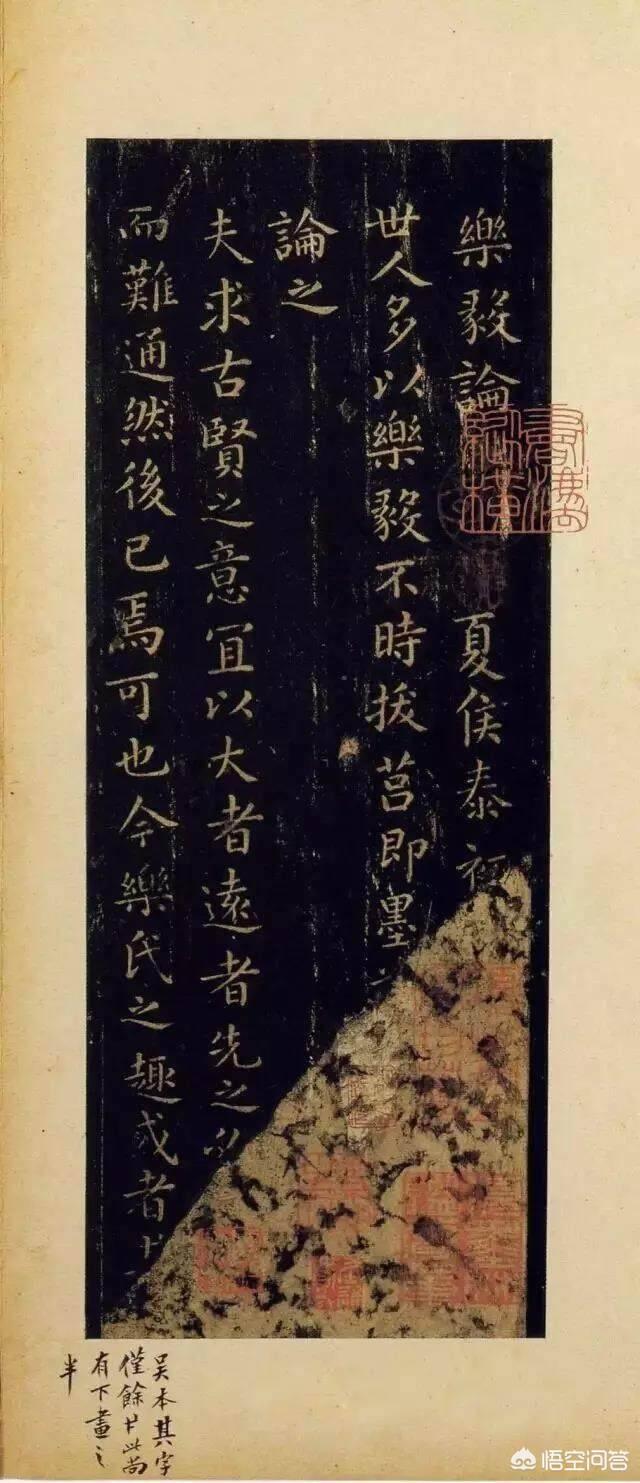 樂毅論 夏侯泰初
世人多以樂毅不時拔莒即墨
論之
夫求古賢之意宜以大者遠者先之必
而難通然後已焉可也今樂氏之趣或者
吴本其字
僅餘此尚
有下畫之
半
悟空问答